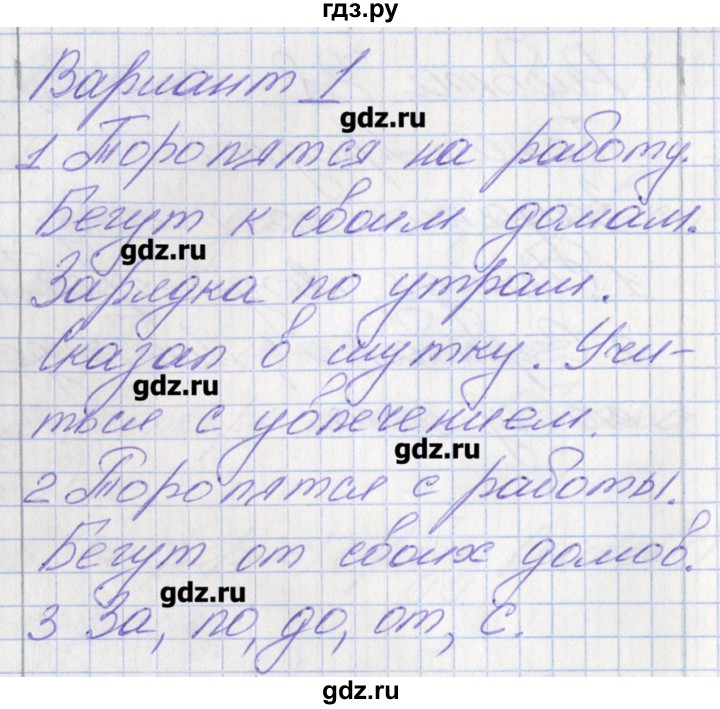 гдз.ру
Вариант 1
gdz.ru
1 Торопятся на работу.
Бегут к своим домам.
gdz.ru
Зарядка по утрам.
Сказал в шутку. Учи-
gdz.ru
ться с увлечением.
gdz.ru
2 Торопятся с работы.
Бегут от своих домов.
gdz.ru
3 За, по, до, от, с.
gdz.ru